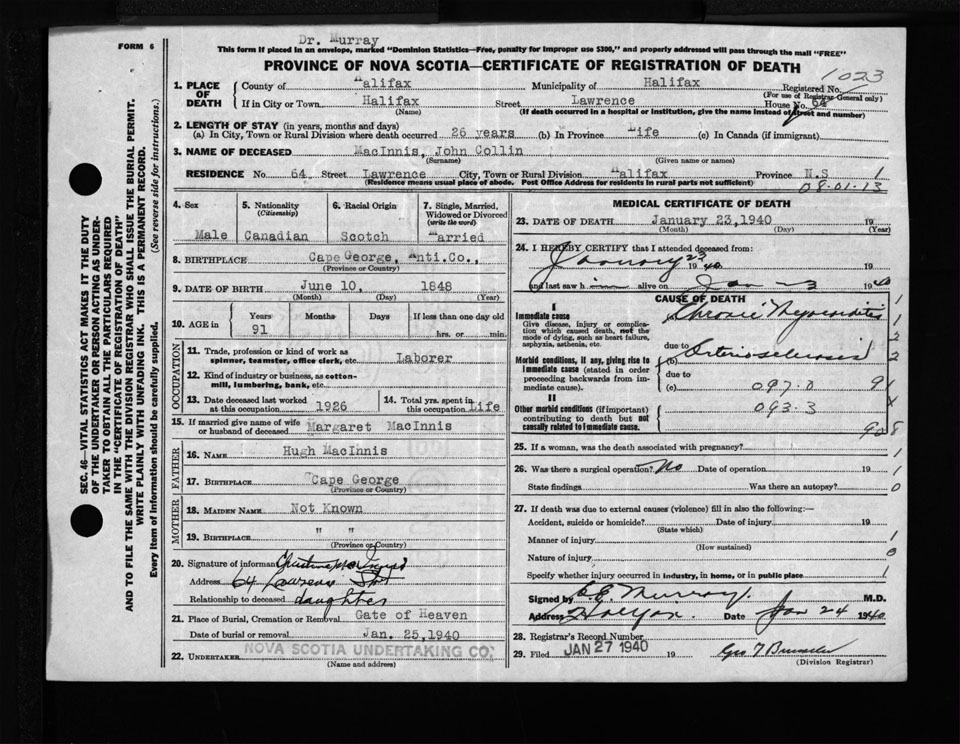 Dr. Murray
FORM 6
This form if placed in an envelope, marked "Dominion Statistics—Free, penalty for improper use $300," and properly addressed will pass through the mail "FREE"
PROVINCE OF NOVA SCOTIA—CERTIFICATE OF REGISTRATION OF DEATH
1023
1. PLACE OF DEATH
County of Halifax Municipality of Halifax Registered No.
(For use of Registrar-General only)
If in City or Town Halifax Street Lawrence House No. 64
(Name) (If death occurred in a hospital or institution, give the name instead of street and number)
2. LENGTH OF STAY (in years, months and days)
(a) In City, Town or Rural Division where death occurred 26 years (b) In Province Life (c) In Canada (if immigrant)
3. NAME OF DECEASED MacInnis, John Collin
(Surname) (Given name or names)
RESIDENCE No. 64 Street Lawrence City, Town or Rural Division Halifax Province N.S 1
(Residence means usual place of abode. Post Office Address for residents in rural parts not sufficient)
08.01.13
SEC. 46—VITAL STATISTICS ACT MAKES IT THE DUTY
OF THE UNDERTAKER OR PERSON ACTING AS UNDER-
TAKER TO OBTAIN ALL THE PARTICULARS REQUIRED
IN THE "CERTIFICATE OF REGISTRATION OF DEATH"
AND TO FILE THE SAME WITH THE DIVISION REGISTRAR WHO SHALL ISSUE THE BURIAL PERMIT.
WRITE PLAINLY WITH UNFADING INK. THIS IS A PERMANENT RECORD.
Every item of Information should be carefully supplied. (See reverse side for instructions.)
4. Sex Male
5. Nationality (Citizenship) Canadian
6. Racial Origin Scotch
7. Single, Married, Widowed or Divorced (write the word) Married
8. BIRTHPLACE Cape George, Anti.Co.,
(Province or Country)
9. DATE OF BIRTH June 10, 1848
(Month) (Day) (Year)
10. AGE in Years Months Days If less than one day old
91 hrs. or min.
OCCUPATION
11. Trade, profession or kind of work as spinner, teamster, office clerk, etc. Laborer
12. Kind of industry or business, as cotton-mill, lumbering, bank, etc.
13. Date deceased last worked at this occupation 1926
14. Total yrs. spent in this occupation Life
15. If married give name of wife or husband of deceased Margaret MacInnis
FATHER
16. NAME Hugh MacInnis
17. BIRTHPLACE Cape George
(Province or Country)
MOTHER
18. MAIDEN NAME Not Known
19. BIRTHPLACE " "
(Province or Country)
20. Signature of informant
Address 64 Lawrence
Relationship to deceased daughter
21. Place of Burial, Cremation or Removal Gate of Heaven
Date of burial or removal Jan. 25, 1940
22. UNDERTAKER NOVA SCOTIA UNDERTAKING CO.
(Name and address)
MEDICAL CERTIFICATE OF DEATH
23. DATE OF DEATH January 23, 1940 19
(Month) (Day) (Year)
24. I HEREBY CERTIFY that I attended deceased from:
January 1940 19
and last saw h alive on Jan 1940
CAUSE OF DEATH
I
Immediate cause
Give disease, injury or complication which caused death, not the mode of dying, such as heart failure, asphyxia, asthenia, etc.
Chronic Myocarditis
due to
Morbid conditions, if any, giving rise to immediate cause (stated in order proceeding backwards from immediate cause).
(b) Arteriosclerosis
due to
(c) 097.0 91
II
Other morbid conditions (if important) contributing to death but not causally related to immediate cause.
093.3
908
25. If a woman, was the death associated with pregnancy?
26. Was there a surgical operation? No Date of operation 19
State findings Was there an autopsy?
27. If death was due to external causes (violence) fill in also the following:—
Accident, suicide or homicide? Date of injury 19
(State which)
Manner of injury
(How sustained)
Nature of injury
Specify whether injury occurred in industry, in home, or in public place
Signed by Murray. M.D.
Address Date Jan 24 1940
28. Registrar's Record Number
29. Filed JAN 27 1940 19
(Division Registrar)